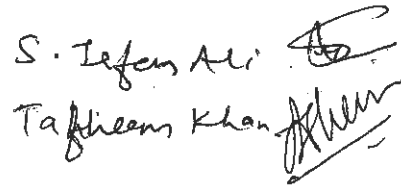 S. Irfan Ali
Tafheem Khan